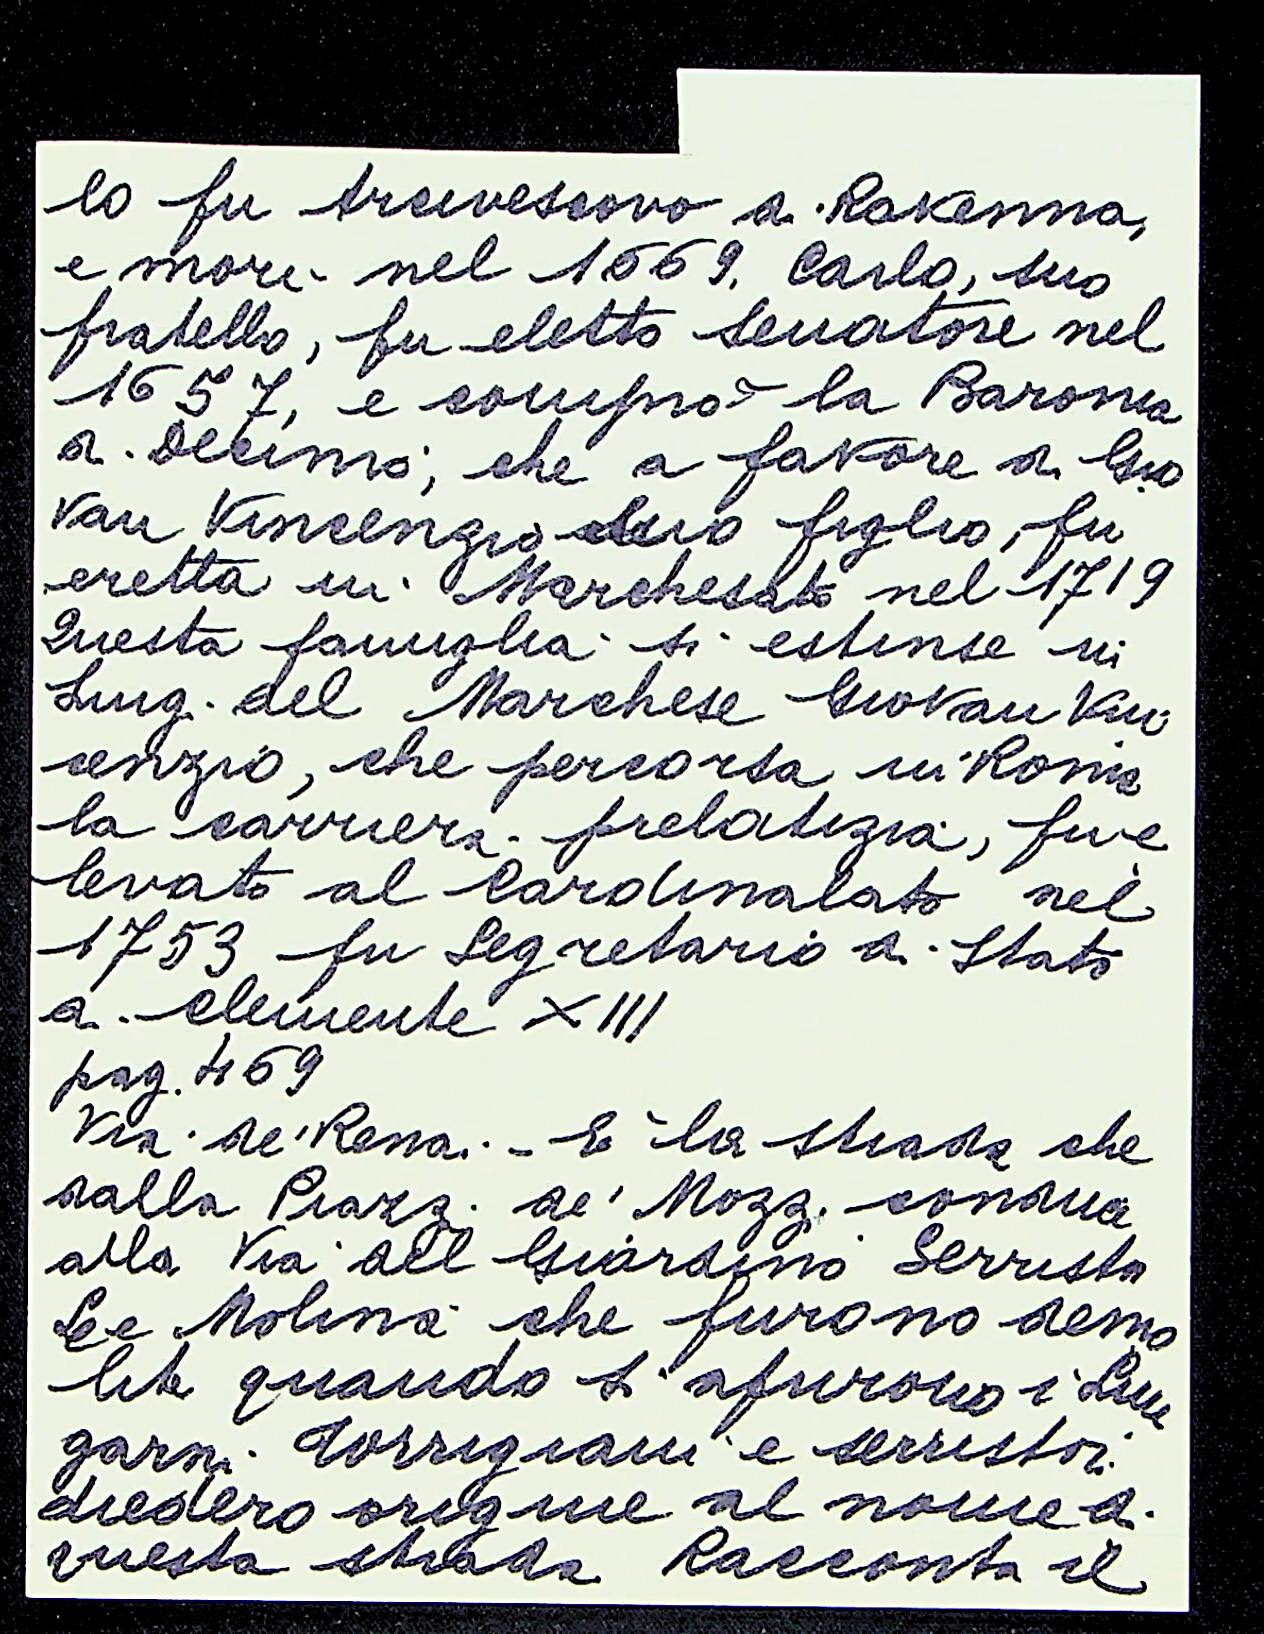 lo fu Arcivescovo di Ravenna,
e morì nel 1669. Carlo, suo
fratello, fu eletto Senatore nel
1657, e comprò la Baronia
di Decimo, che a favore di Gio
van Vincenzio suo figlio, fu
eretta in Marchesato nel 1719
Questa famiglia si estinse in
Luigi del Marchese Giovan Vin
cenzio, che percorsa in Roma
la carriera prelatizia, fu e
levato al Cardinalato nel
1753 fu Segretario di Stato
di Clemente XIII
pag. 469
Via de' Renai. - È la strada che
dalla Piazza de' Mozzi conduce
alla Via del Giardino Serristo
Le Molina che furono demo
lite quando si apurono i Lun
garni Torrigiani e Serristori
diedero origine al nome di
questa strada Racconta il